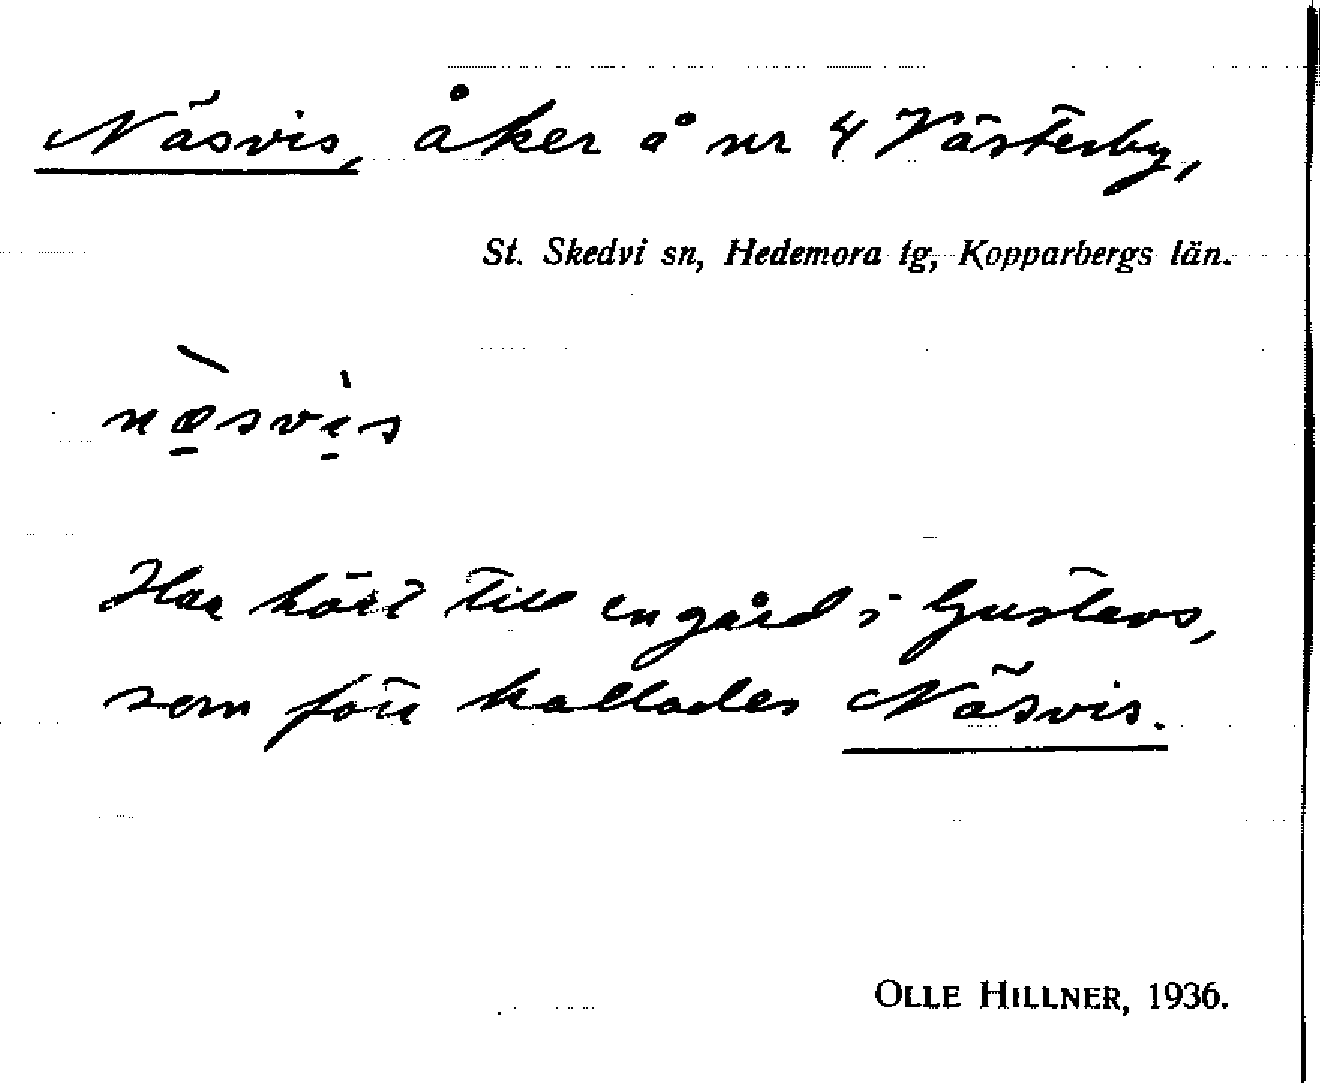 Näsvis, åker å nr 4 Västerby,
St. Skedvi sn, Hedemora tg, Kopparbergs län.
næ̀svìs
Har hört till en gård i Gustavs,
som förr kallades Näsvis.
OLLE HILLNER, 1936.